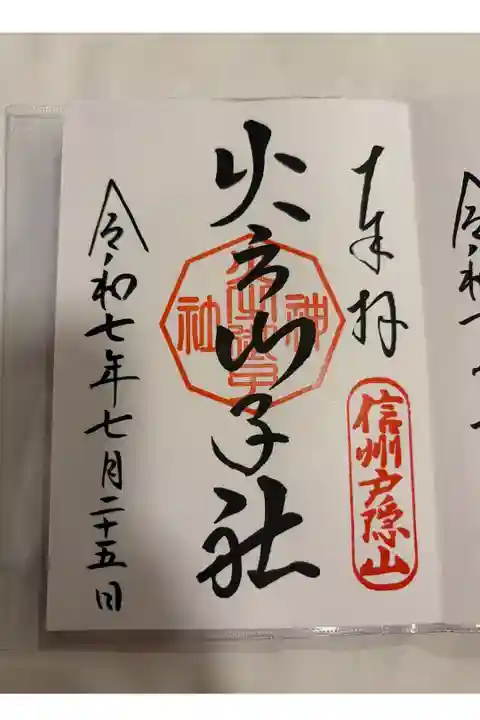 奉拝
信州戸隠山
火之御子社
神社
令和七年七月二十五日